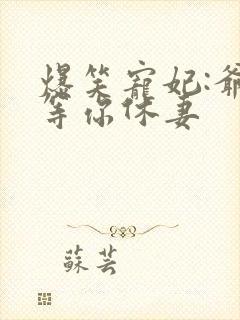 爆笑寵妃:爺
等你休妻
蘇芸